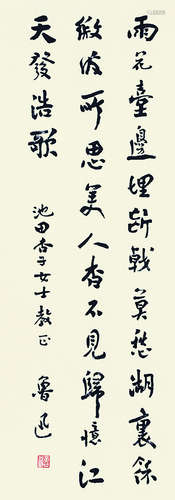 雨花臺邊埋斷戟莫愁湖裏餘
微波所思美人杳不見歸憶江
天發浩歌
池田杏子女士教正
魯迅